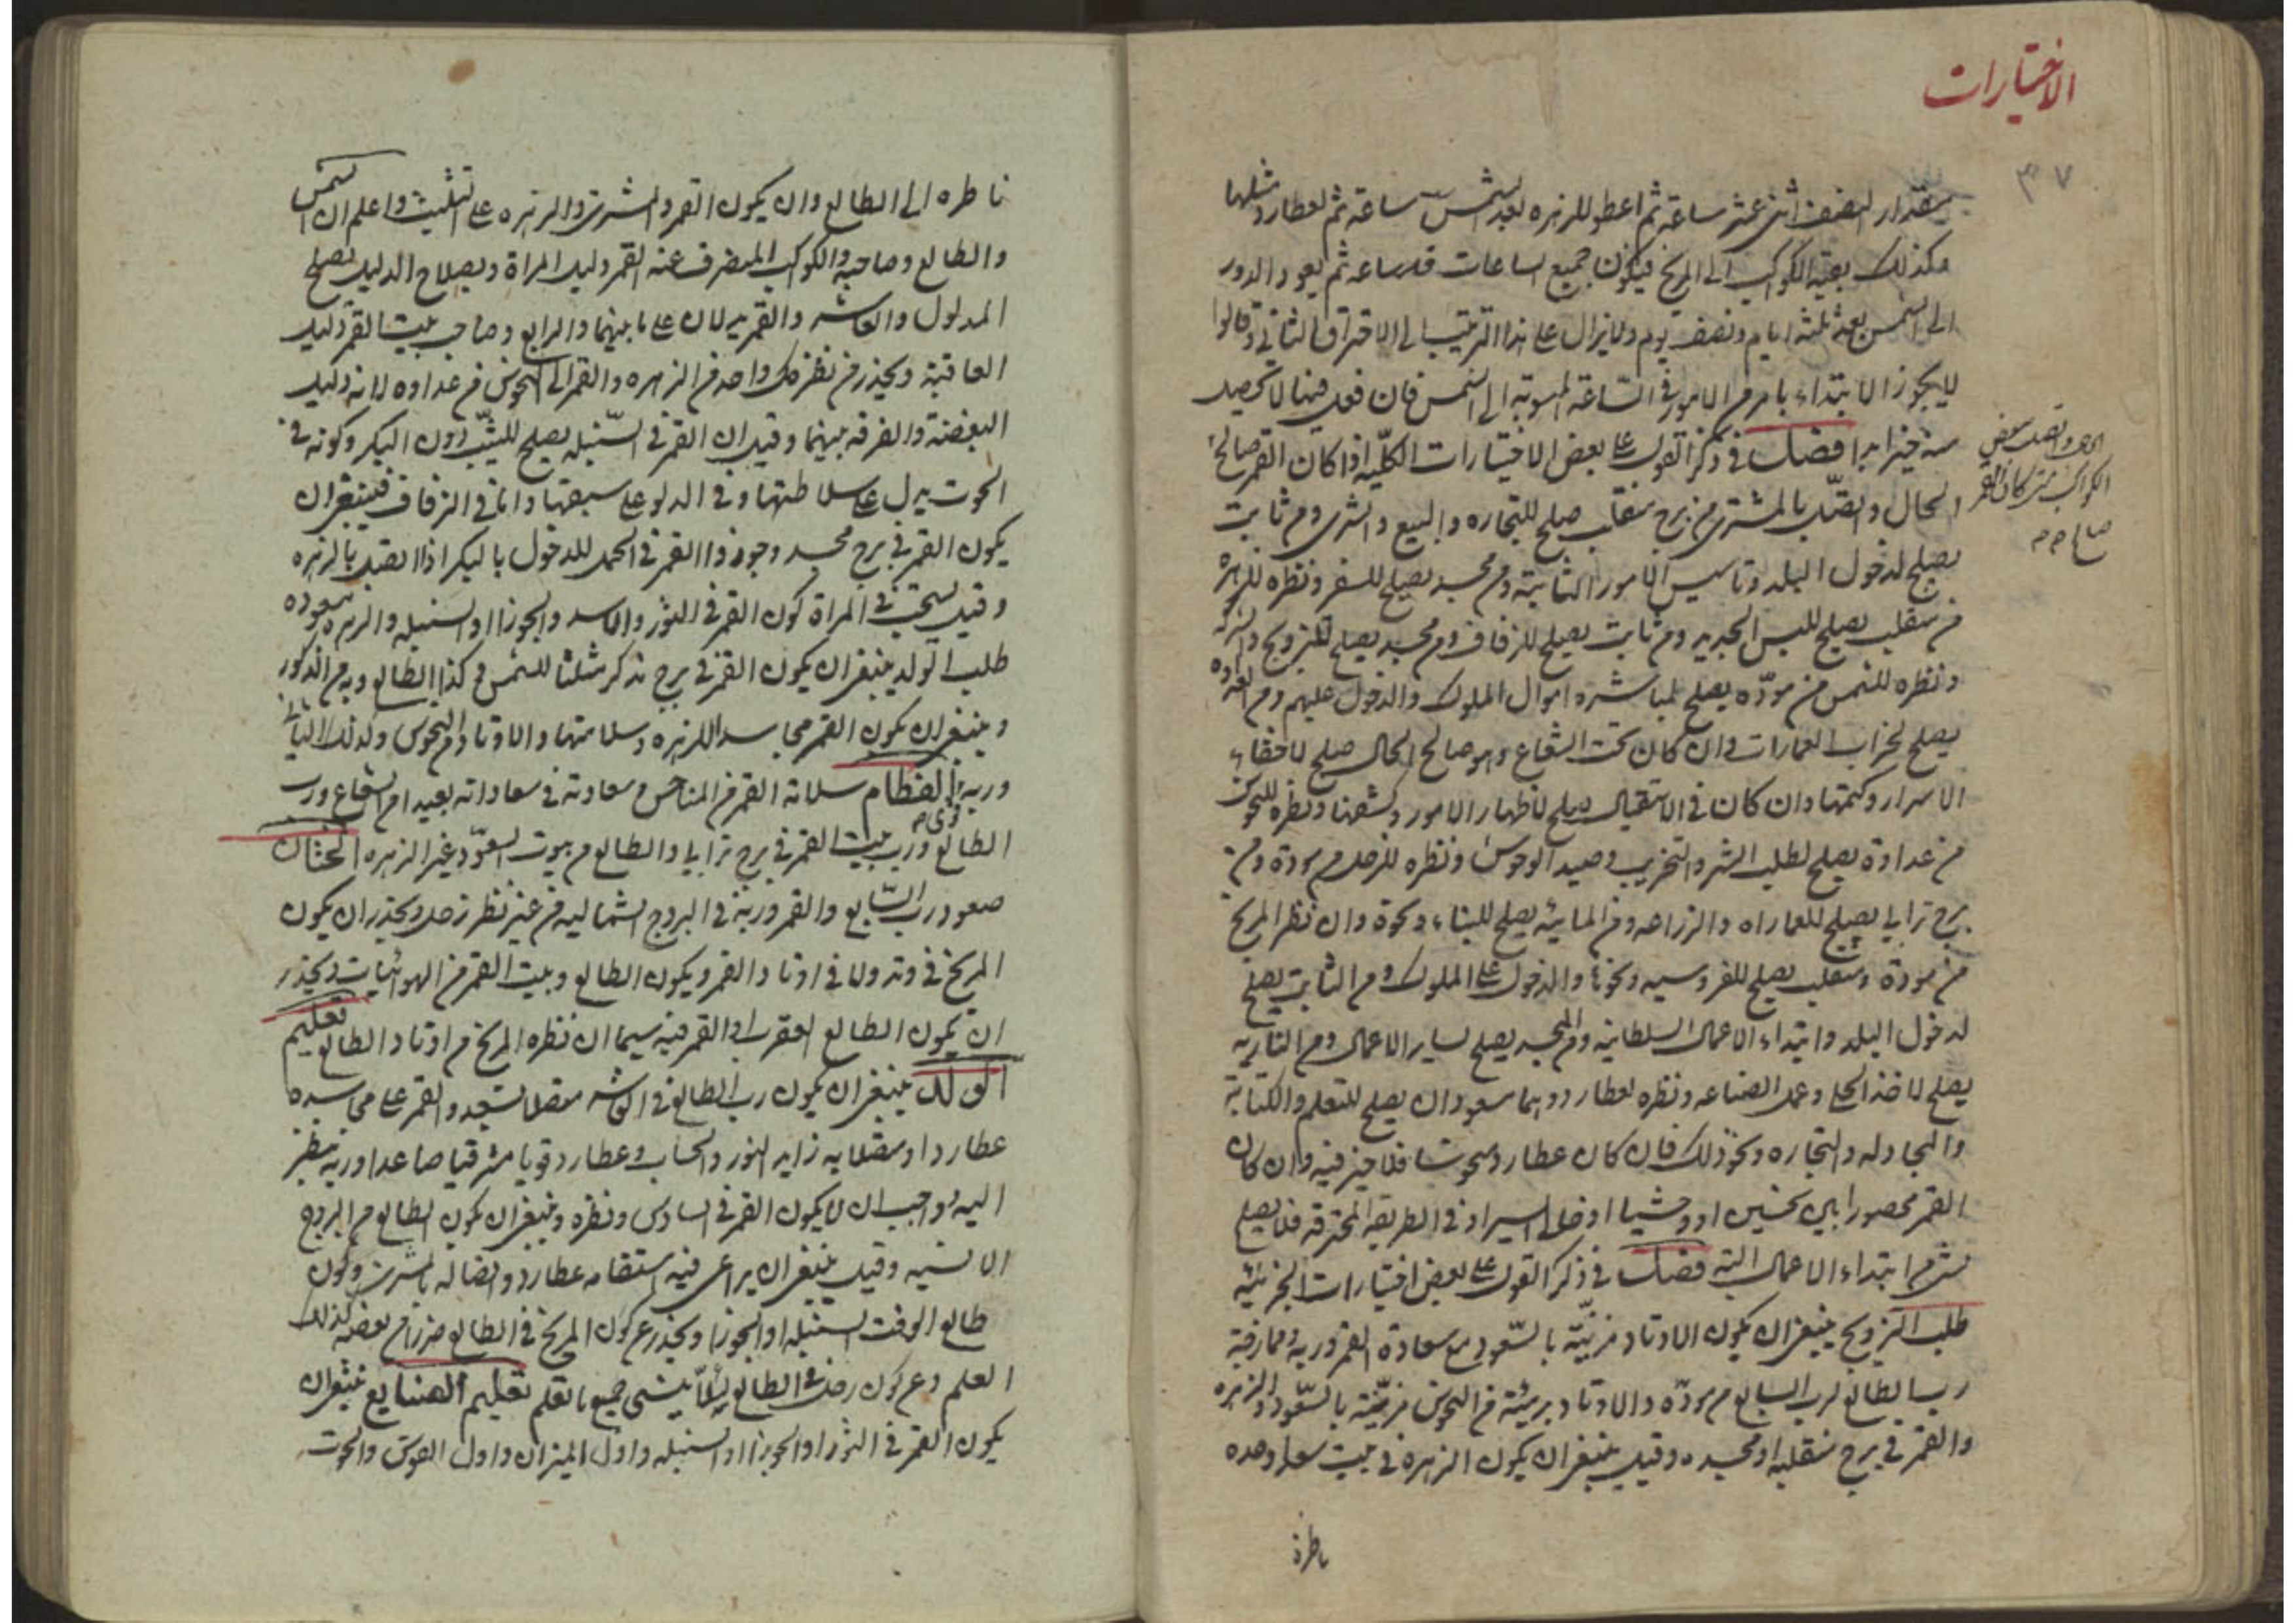 الاختيارات
٣٧
بمقدار لنصف اثنى عشر ساعة ثم اعطوا للزهره بعد الشمس ساعة ثم لعطارد مثلها
وكذلك بقية الكواكب الى المريخ فيكون جميع الساعات قدر ساعه ثم يعود الدور
الى الشمس بعد ثلثة ايام ونصف يوم ولا يزال على هذا الترتيب الى الاحتراق الثانى وقالوا
لا يجوز الابتداء بامر من الامور فى الساعة المنسوبة الى الشمس فان فعل فيها لا تحصيل
منه خيرا ابدا فصل فى ذكر القول على بعض الاختيارات الكلية اذا كان القمر صالح
الحال واتصل بالمشترى من برج منقلب صلح للتجاره والبيع والشرى ومن ثابت
يصلح لدخول البلد وتاسيس الامور الثابتة ومن مجسد يصلح للسفر ونظره للزهره
من منقلب يصلح للبس الجديد ومن ثابت يصلح للزفاف ومن مجسد يصلح للتزويج والشركه
ونظره للشمس من مودة يصلح لمباشرة اموال الملوك والدخول عليهم ومن العداوه
يصلح لخراب العمارات وان كان تحت الشعاع وهو صالح الحال صلح لاخفاء
الاسرار وكتمها وان كان فى الاستقبال يصلح لاظهار الامور وكشفها ونظره للنحوس
من عداوة يصلح لطلب الشر والتخريب وصيد الوحوش ونظره للزحل من مودة ومن
برج ترابى يصلح للعماراه والزراعه ومن المائية يصلح للبناء ونحوه وان نظر المريخ
من مودة ومنقلب يصلح للفروسيه ونحوها والدخول على الملوك ومن الثابت يصلح
لدخول البلد وابتداء الاعمال السلطانية ومن المجسد يصلح لساير الاعمال ومن الناريه
يصلح لاخذ الحلى وعمل الصناعه ونظره لعطارد وهما مسعودان يصلح للتعلم والكتابة
والمجادله والتجاره ونحو ذلك فان كان عطارد منحوسا فلا خير فيه وان كان
القمر محصورا بين نحسين او وحشيا او خالى السير او فى الطريقة المحترقه فلا يصلح
شئ من ابتداء الاعمال البته فصل فى ذكر القول على بعض اختيارات الجزئيه
طلب التزويج ينبغى ان يكون الاوتاد مزينة بالسعود مع سعادة القمر وربه وممازجة
رب الطالع لرب السابع من مودة والاوتاد بريئة من النحوس مزينة بالسعود والزهره
والقمر فى برج منقلبه او مجسده وقيل ينبغى ان يكون الزهرة فى بيت سعد وحده
ناظرة
الحال واتصل ببعض
الكواكب كان القمر
صالح
ناظره الى الطالع وان يكون القمر والمشترى والزهره على التثليث واعلم ان الشمس
والطالع وصاحبه والكوكب المنصرف عنه القمر دليل المراة وبصلاح الدليل يصلح
المدلول والعاشر والقمر يدلان على ما بينهما والرابع وصاحب بيت القمر دليل
العاقبة ويحذر من نظر كل واحد من الزهره والقمر الى النحوس من عداوه لانه دليل
البغضة والفرقه بينهما وقيل ان القمر فى السنبله يصلح للثيب دون البكر وكونه فى
الحوت يدل على سلاطتها وفى الدلو على سبقها واما فى الزفاف فينبغى ان
يكون القمر فى برج مجسد وجوزوا القمر فى الحمل للدخول بالبكر اذا اتصل بالزهره
وقيل يستحب فى المراة كون القمر فى الثور والاسد والجوزا او السنبله والزهره مسعوده
طلب الولد ينبغى ان يكون القمر فى برج مذكر مثلثا للشمس وكذا الطالع وربه من الذكور
وينبغى ان يكون القمر مجاسدا للزهره وسلامتها والاوتاد من النحوس وكذلك الثانى
وربه الفطام سلامة القمر من المناحس وسعادته فى سعاداته بعيدا من الشعاع ورب
الطالع ورب بيت القمر فى برج ترابى والطالع من بيوت السعود غير الزهره الختان
قوى
صعود رب السابع والقمر وربه فى البروج الشماليه من غير نظر زحل ويحذر ان يكون
المريخ فى وتد ولا فى اوتاد القمر ويكون الطالع وبيت القمر من الهوائيات ويحذر
ان يكون الطالع العقرب او القمر فيه سيما ان نظره المريخ من اوتاد الطالع تعليم
الولد ينبغى ان يكون رب الطالع فى العاشر متصلا بسعد والقمر على مجاسده
عطارد او متصلا به زايد النور والحساب وعطارد قويا مشرقيا صاعدا وربه ينظر
اليه وواجب ان لا يكون القمر فى السادس ونظره وينبغى ان يكون الطالع من البروج
الانسيه وقيل ينبغى ان يراعى فيه استقامه عطارد واتصاله بالمشترى وكون
طالع الوقت السنبله او الجوزا ويحذر عن كون المريخ فى الطالع ضررا من بعضه لذلك
العلم وعن كون زحل فى الطالع لئلا ينسى جميع ما تعلم تعليم الصنايع ينبغى ان
يكون القمر فى الثور او الجوزا او السنبله واول الميزان واول القوس والحوت